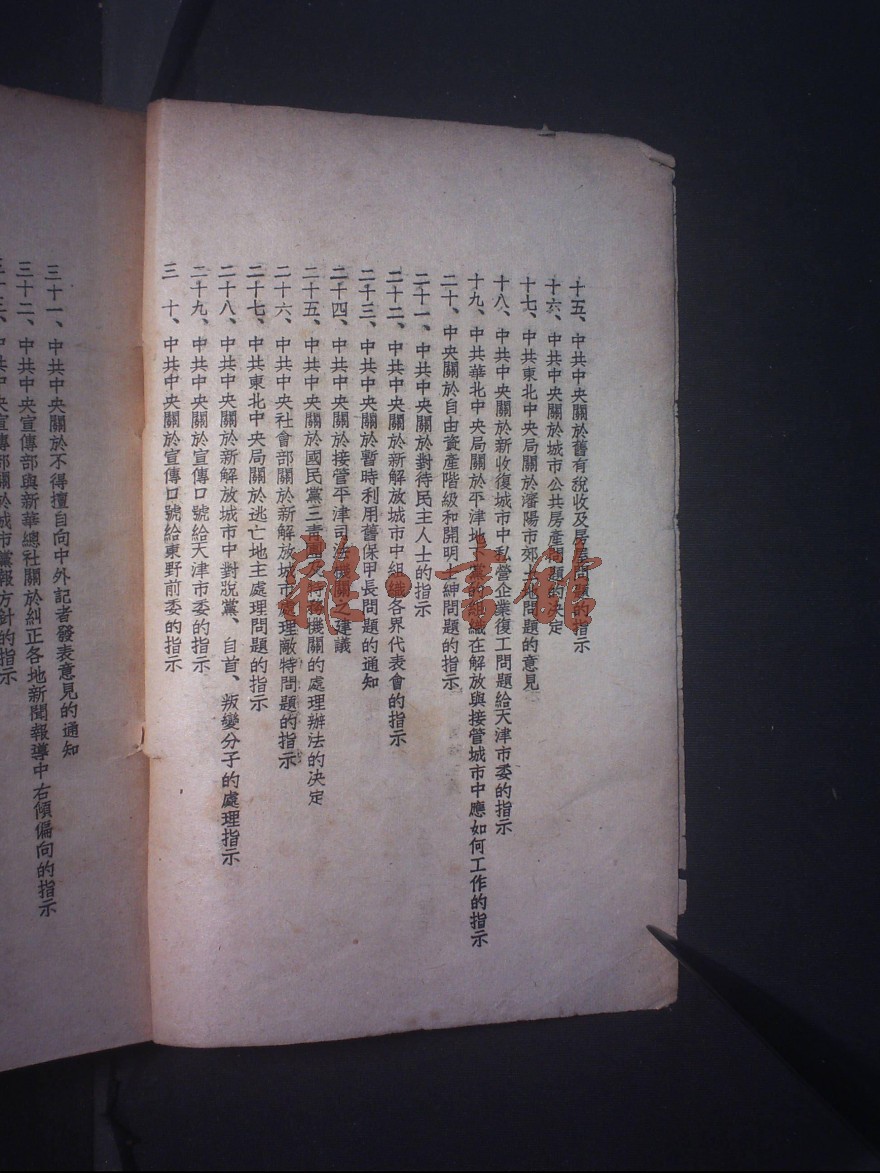 十五、中共中央關於舊有稅收及房屋問題的指示
十六、中共中央關於城市公共房產問題的决定
十七、中共東北中央局關於瀋陽市郊土地問題的意見
十八、中共中央關於新收復城市中私營企業復工問題給天津市委的指示
十九、中共華北中央局關於平津地下黨的組織在解放與接管城市中應如何工作的指示
二十、中央關於自由資產階級和開明士紳問題的指示
二十一、中共中央關於對待民主人士的指示
二十二、中共中央關於新解放城市中組織各界代表會的指示
二十三、中共中央關於暫時利用舊保甲長問題的通知
二十四、中共中央關於接管平津司法機關之建議
二十五、中共中央關於國民黨三青團及特務機關的處理辦法的决定
二十六、中共中央社會部關於新解放城市處理敵特問題的指示
二十七、中共東北中央局關於逃亡地主處理問題的指示
二十八、中共中央關於新解放城市中對脫黨、自首、叛變分子的處理指示
二十九、中共中央關於宣傳口號給天津市委的指示
三　十、中共中央關於宣傳口號給東野前委的指示
三十一、中共中央關於不得擅自向中外記者發表意見的通知
三十二、中共中央宣傳部與新華總社關於糾正各地新聞報導中右傾偏向的指示
三十三、中共中央宣傳部關於城市黨報方針的指示
雜·書館